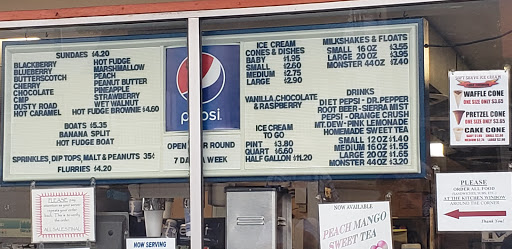 SUNDAES $4.20
BLACKBERRY HOT FUDGE
BLUEBERRY MARSHMALLOW
BUTTERSCOTCH PEACH
CHERRY PEANUT BUTTER
CHOCOLATE PINEAPPLE
CMP STRAWBERRY
DUSTY ROAD WET WALNUT
HOT CARAMEL HOT FUDGE BROWNIE $4.60
BOATS $5.35
BANANA SPLIT
HOT FUDGE BOAT
SPRINKLES, DIP TOPS, MALT & PEANUTS 35¢
FLURRIES $4.20
pepsi
OPEN YEAR ROUND
7 DAYS A WEEK
ICE CREAM
CONES & DISHES
BABY $1.95
SMALL $2.60
MEDIUM $2.75
LARGE $2.90
VANILLA, CHOCOLATE
& RASPBERRY
ICE CREAM
TO GO
PINT $3.80
QUART $6.60
HALF GALLON $11.20
MILKSHAKES & FLOATS
SMALL 16 OZ $3.55
LARGE 20 OZ $3.95
MONSTER 44 OZ $7.40
DRINKS
DIET PEPSI - DR. PEPPER
ROOT BEER - SIERRA MIST
PEPSI - ORANGE CRUSH
MT. DEW - PINK LEMONADE
HOMEMADE SWEET TEA
SMALL 12 OZ $1.40
MEDIUM 16 OZ $1.55
LARGE 20 OZ $1.65
MONSTER 44 OZ $3.20
SOFT SERVE ICE CREAM
WAFFLE CONE
ONE SIZE ONLY $3.65
PRETZEL CONE
ONE SIZE ONLY $3.65
CAKE CONE
PLEASE
ORDER ALL FOOD
AT THE KITCHEN WINDOW
AROUND THE CORNER
PLEASE
ALL SALES FINAL!
NOW SERVING
NOW AVAILABLE
PEACH MANGO
SWEET TEA